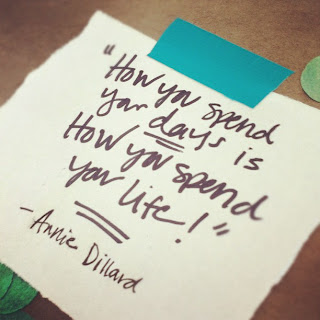 "How you spend
your days is
How you spend
your life!"
- Annie Dillard